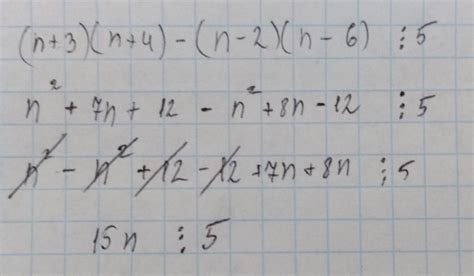 (n+3)(n+4) - (n-2)(n-6) ⋮5
n² + 7n + 12 - n² + 8n - 12 ⋮5
n² - n² + 12 - 12 + 7n + 8n ⋮5
15n ⋮5